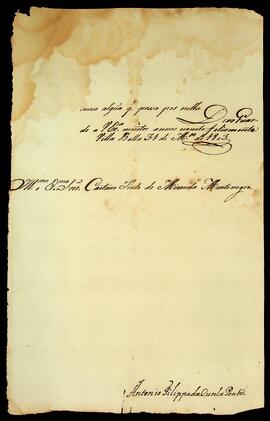 couza algũa q̃ possa por nella Deos Guar-
de a V Exª muitos annos muito felismente
Villa Bella 31 de M.ço de 1803.
Illmo e Exmo Snr. Caetano Pinto de Miranda Montenegro.
Antonio Filippe da Cunha Ponte